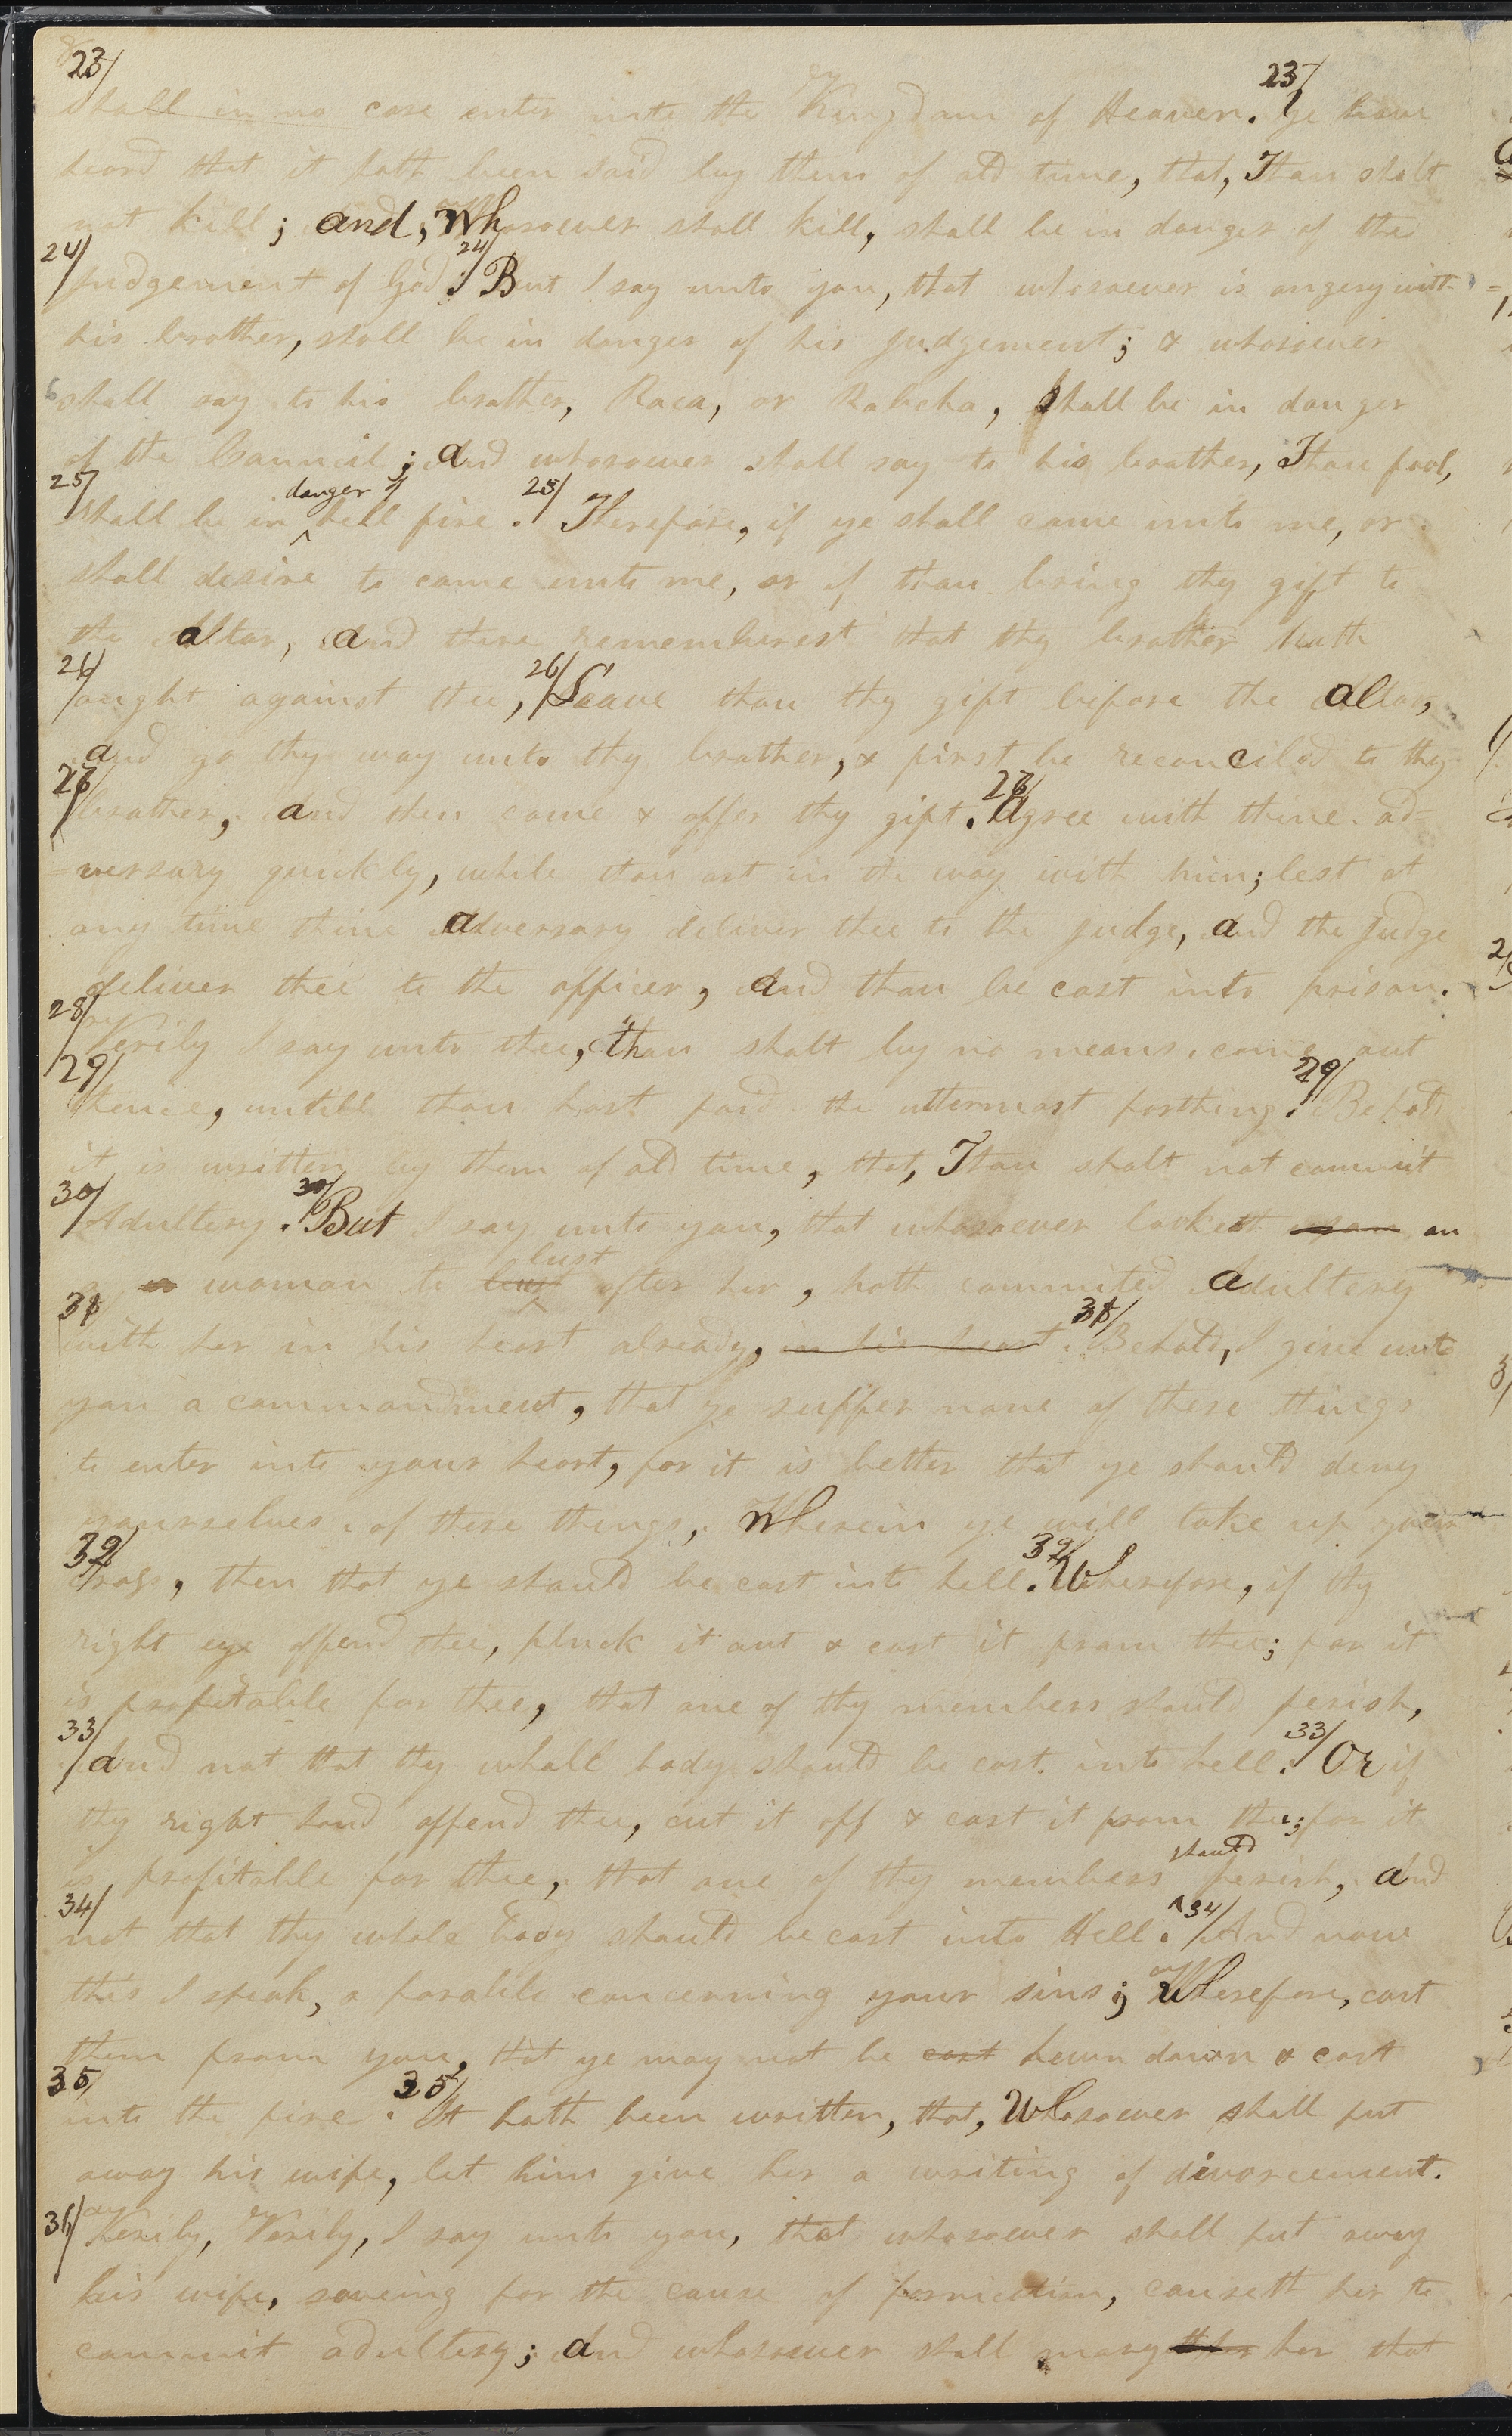 23/
shall in no case enter into the Kingdom of Heaven. 23/ Ye have
heard that it hath been said by them of old time, that, Thou shalt
not kill; and, Whosoever shall kill, shall be in danger of the
24/ judgement of God. 24/ But I say unto you, that whosoever is angery with
his brother, shall be in danger of his judgement; & whosoever
shall say to his brother, Raca, or Rabcha, shall be in danger
of the Council; and whosoever shall say to his brother, Thou fool,
25/ shall be in ^danger of hell fire. 25/ Therefore, if ye shall come unto me, or
shall desire to come unto me, or if thou bring thy gift to
the altar, and there rememberest that thy brother hath
26/ aught against thee, 26/ Leave thou thy gift before the altar,
and go thy way unto thy brother, & first be reconciled to thy
27/ brother, and then come & offer thy gift. 27/ Agree with thine ad=
=versary quickly, while thou art in the way with him; lest at
any time thine adversary deliver thee to the judge, and the judge
deliver thee to the officer, and thou be cast into prison.
28/ Verily I say unto thee, thou shalt by no means come out
29/ thence, untill thou hast paid the uttermost farthing. 29/ Behold
it is written by them of old time, that, Thou shalt not commit
30/ Adultery. 30/ But I say unto you, that whosoever looketh upon on
a woman to lust lust after her, hath commited adultery
31/ with her in his heart already, in his heart. 31/ Behold, I give unto
you a commandment, that ye suffer none of these things
to enter into your heart, for it is better that ye should deny
yourselves of these things, Wherein ye will take up your
32/ cross, then that ye should be cast into hell. 32/ Wherefore, if thy
right eye offend thee, pluck it out & cast it from thee; for it
is profitable for thee, that one of thy members should perish,
33/ and not that thy whole body should be cast into hell. 33/ Or if
thy right hand offend thee, cut it off & cast it from thee; for it
is profitable for thee, that one of thy members ^should perish, and
34/ not that thy whole body should be cast into Hell. 34/ And now
this I speak, a parable concerning your sins; Wherefore, cast
them from you, that ye may not be cast hewn down & cast
35/ into the fire. 35/ It hath been written, that, Whosoever shall put
away his wife, let him give her a writing of divorcement.
36/ Verily, Verily, I say unto you, that whosoever shall put away
his wife, saveing for the cause of fornication, causeth her to
commit adultery; and whosoever shall mary her that